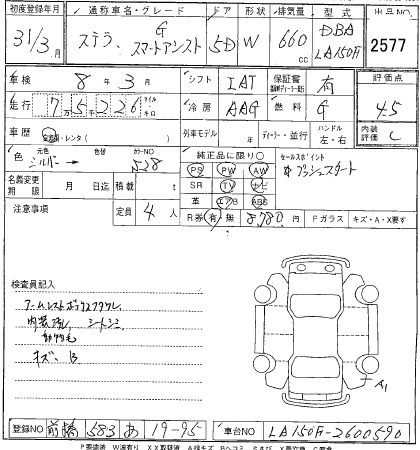 初度登録年月 通称車名・グレード ドア 形状 排気量 型式 出品NO
31/3月 ステラ、G スマートアシスト 5D W 660cc DBA LA150F 2577
車検 8年3月 シフト IAT 保証書 有 評価点
走行 7万5226 マイル キロ 冷房 AAG 燃料 G 4.5
車歴 自家用・レンタ( ) 外車モデル 年 ディーラー・並行 ハンドル 左・右 内装評価 C
色 元色 シルバー → 色替 カラーNO S28 純正品に限り○ セールスポイント
名義変更期限 月 日迄 積載 t PS PW AW プッシュスタート
SR TV ナビ
注意事項 定員 4人 革 エアB ABS
R券 有・無 8780円 Fガラス キズ・A・X要す
検査員記入
アームレストボックスフタワレ
内装汚れ シートシミ
動物毛
キズ、B
A1
登録NO 前橋 583 あ 19-95 車台NO LA150F-2600590